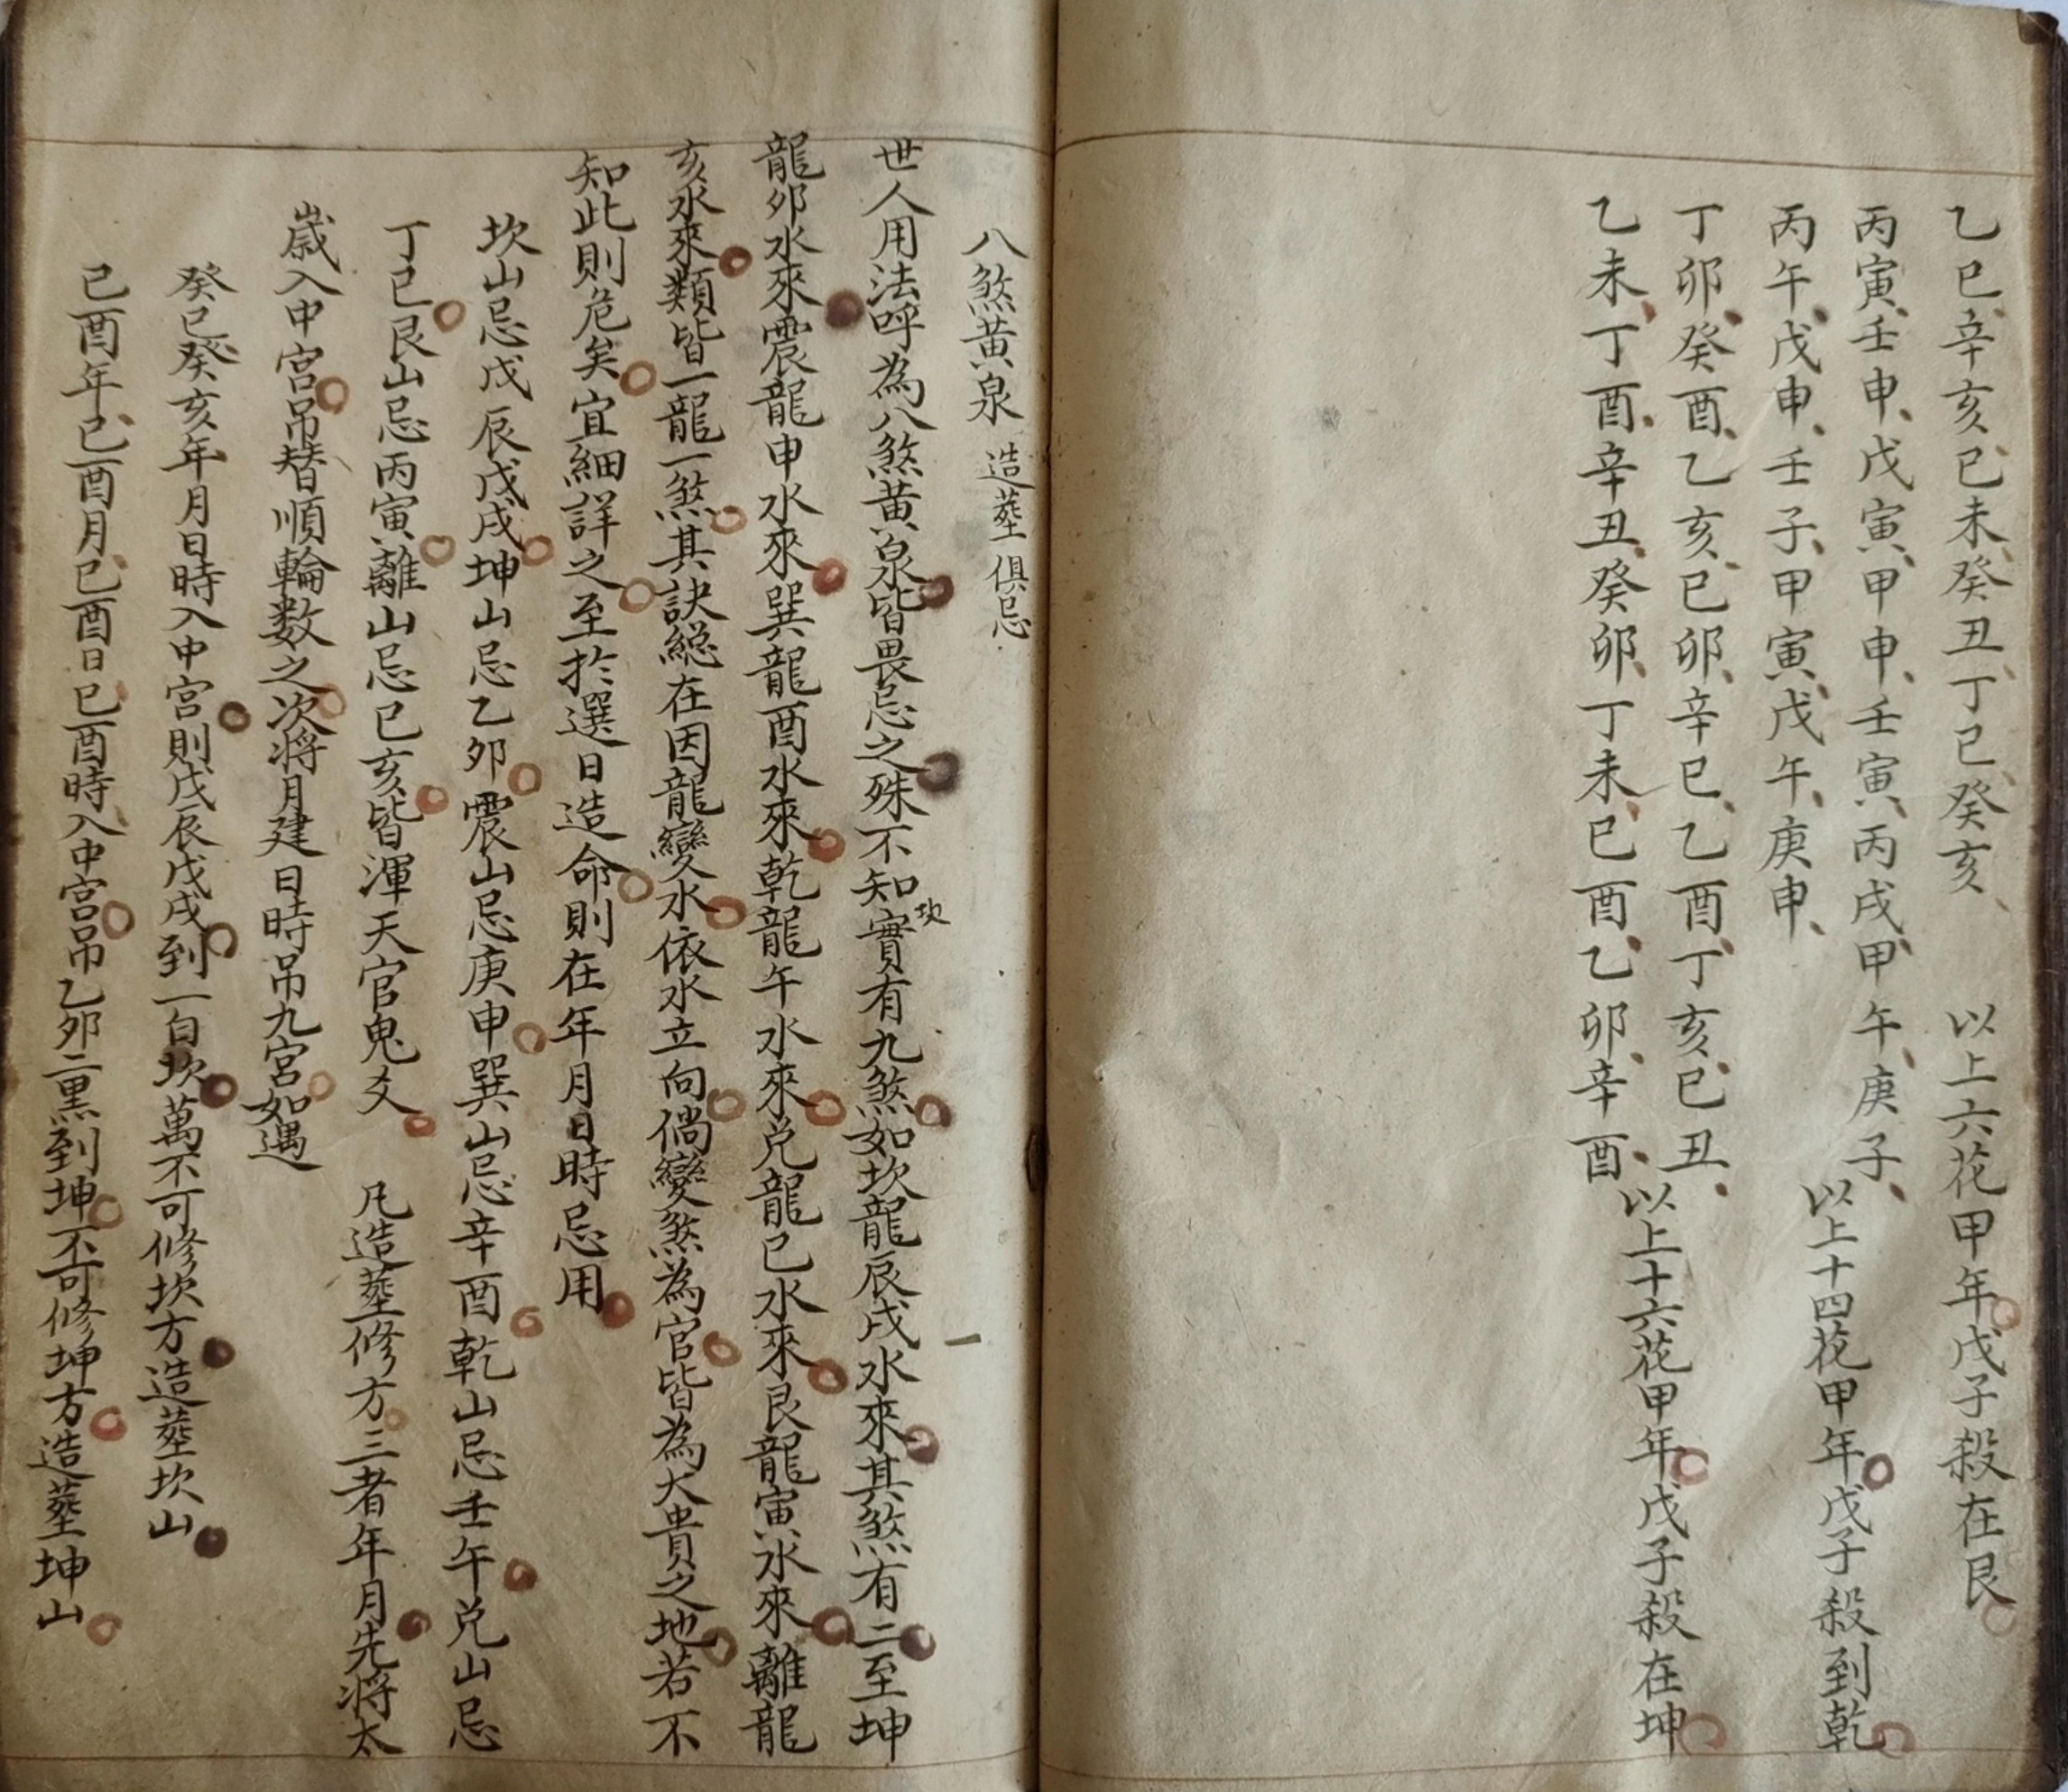 乙巳辛亥己未癸丑丁巳癸亥　以上六花甲年戊子殺在艮
丙寅壬申戊寅甲申壬寅丙戌甲午庚子
丙午戊申壬子甲寅戊午庚申　以上十四花甲年戊子殺到乾
丁卯癸酉乙亥己卯辛巳乙酉丁亥己丑
乙未丁酉辛丑癸卯丁未己酉乙卯辛酉　以上十六花甲年戊子殺在坤
八煞黃泉　造塟俱忌
世人用法呼為八煞黃泉皆畏忌之殊不知坎實有九煞如坎龍辰戌水來其煞有二至坤
龍卯水來震龍申水來巽龍酉水來乾龍午水來兑龍巳水來艮龍寅水來離龍
亥水來類皆一龍一煞其訣緫在因龍變水依水立向倘變煞為官皆為大貴之地若不
知此則危矣宜細詳之至於選日造命則在年月日時忌用
坎山忌戊辰戊戌坤山忌乙卯震山忌庚申巽山忌辛酉乾山忌壬午兑山忌
丁巳艮山忌丙寅離山忌己亥皆渾天官鬼爻　凡造塟修方三者年月先将太
歲入中宮吊替順輪数之次将月建日時吊九宮如遇
癸巳癸亥年月日時入中宮則戊辰戊戌到一白坎萬不可修坎方造塟坎山
己酉年己酉月己酉日己酉時入中宮吊乙卯二黒到坤不可修坤方造塟坤山